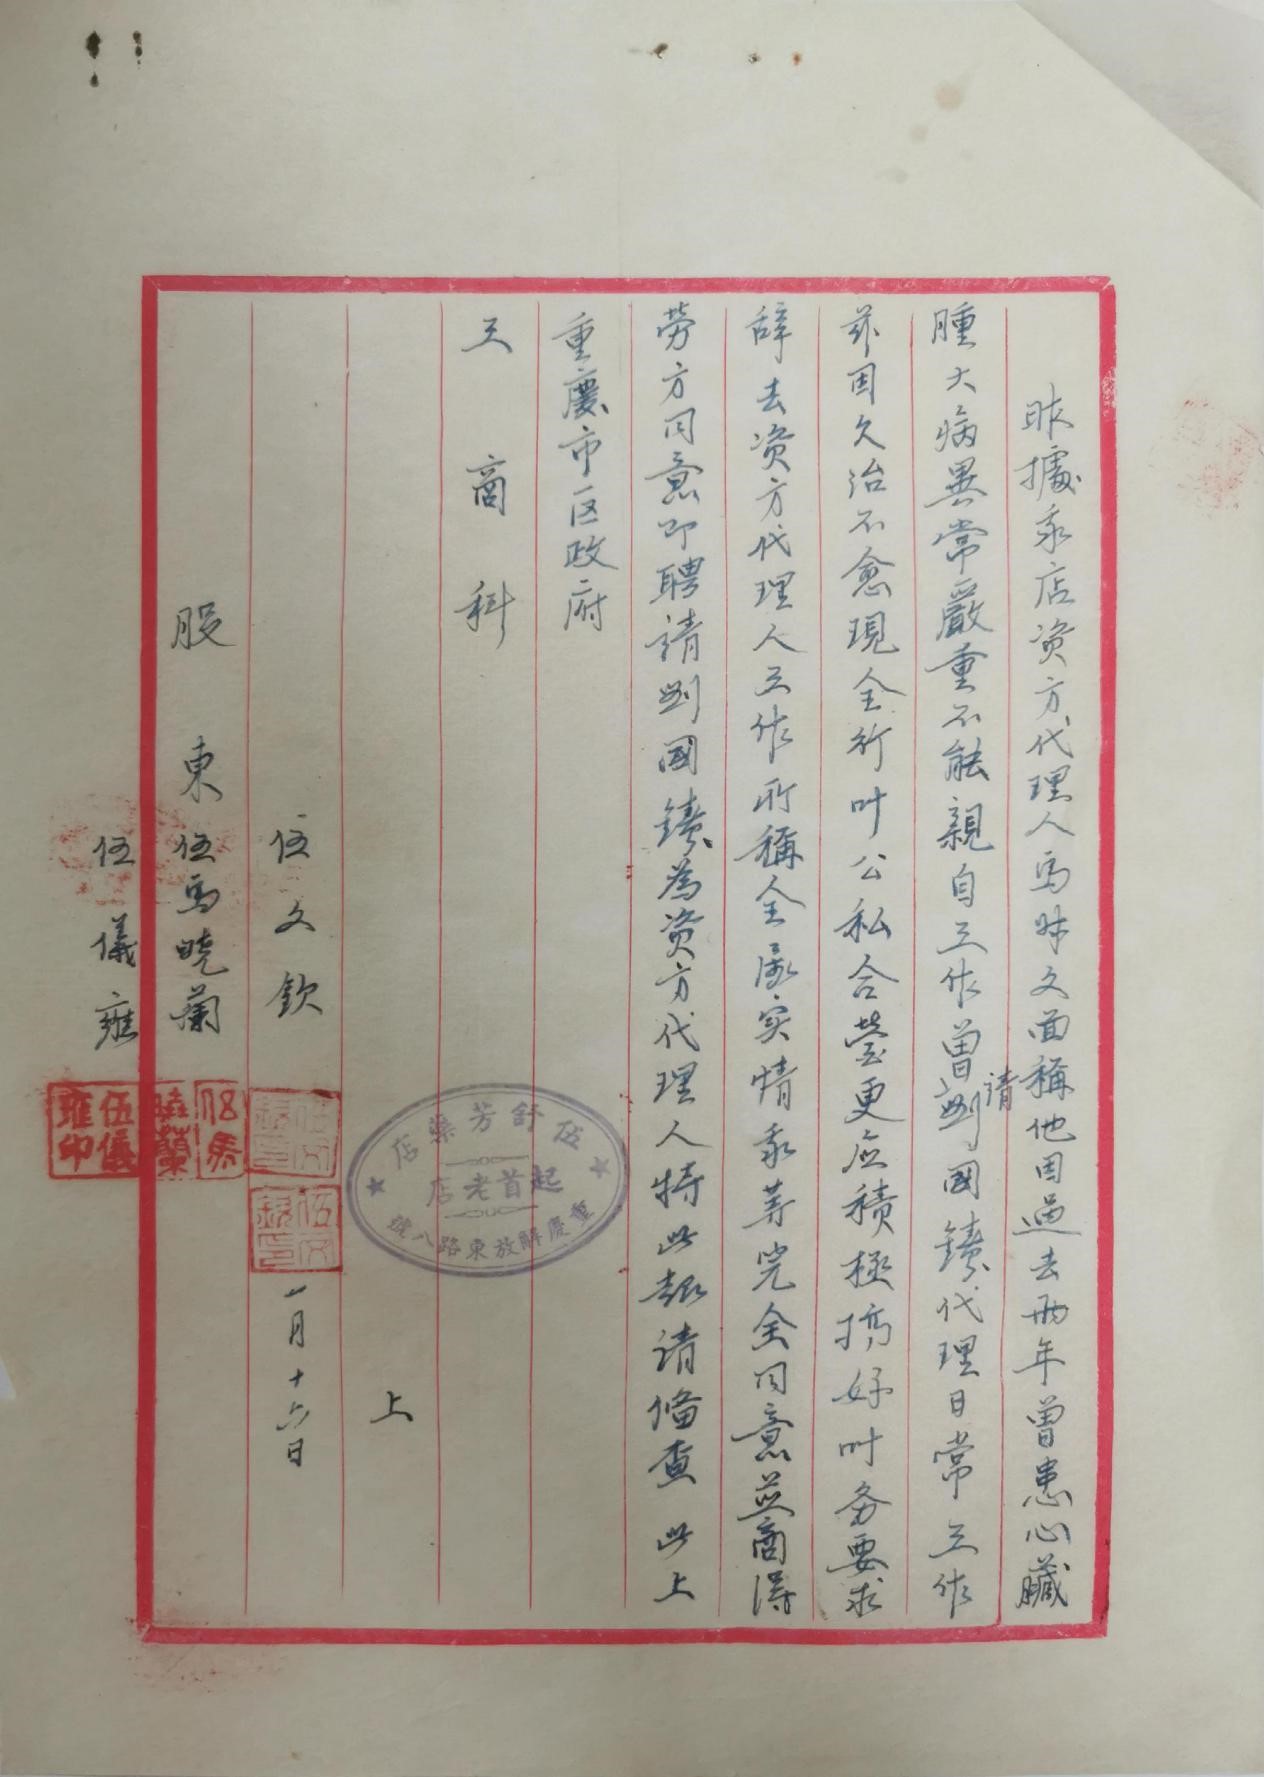 昨據我店资方代理人馬昧文面稱他因過去兩年曾患心臟
腫大病異常嚴重不能親自工作曾请劉國鑄代理日常工作
兹因久治不愈現全行叶公私合营更应積極搞好叶务要求
辞去资方代理人工作所稱全属实情我等完全同意并商得
劳方同意即聘请劉國鑄為资方代理人特此报请俻查 此上
重慶市区政府
工商科
上
伍文欽
一月十六日
股東 伍馬曉蘭
伍儀雍
伍舒芳藥店
起首老店
重慶解放東路八號
伍馬曉蘭
伍儀雍印